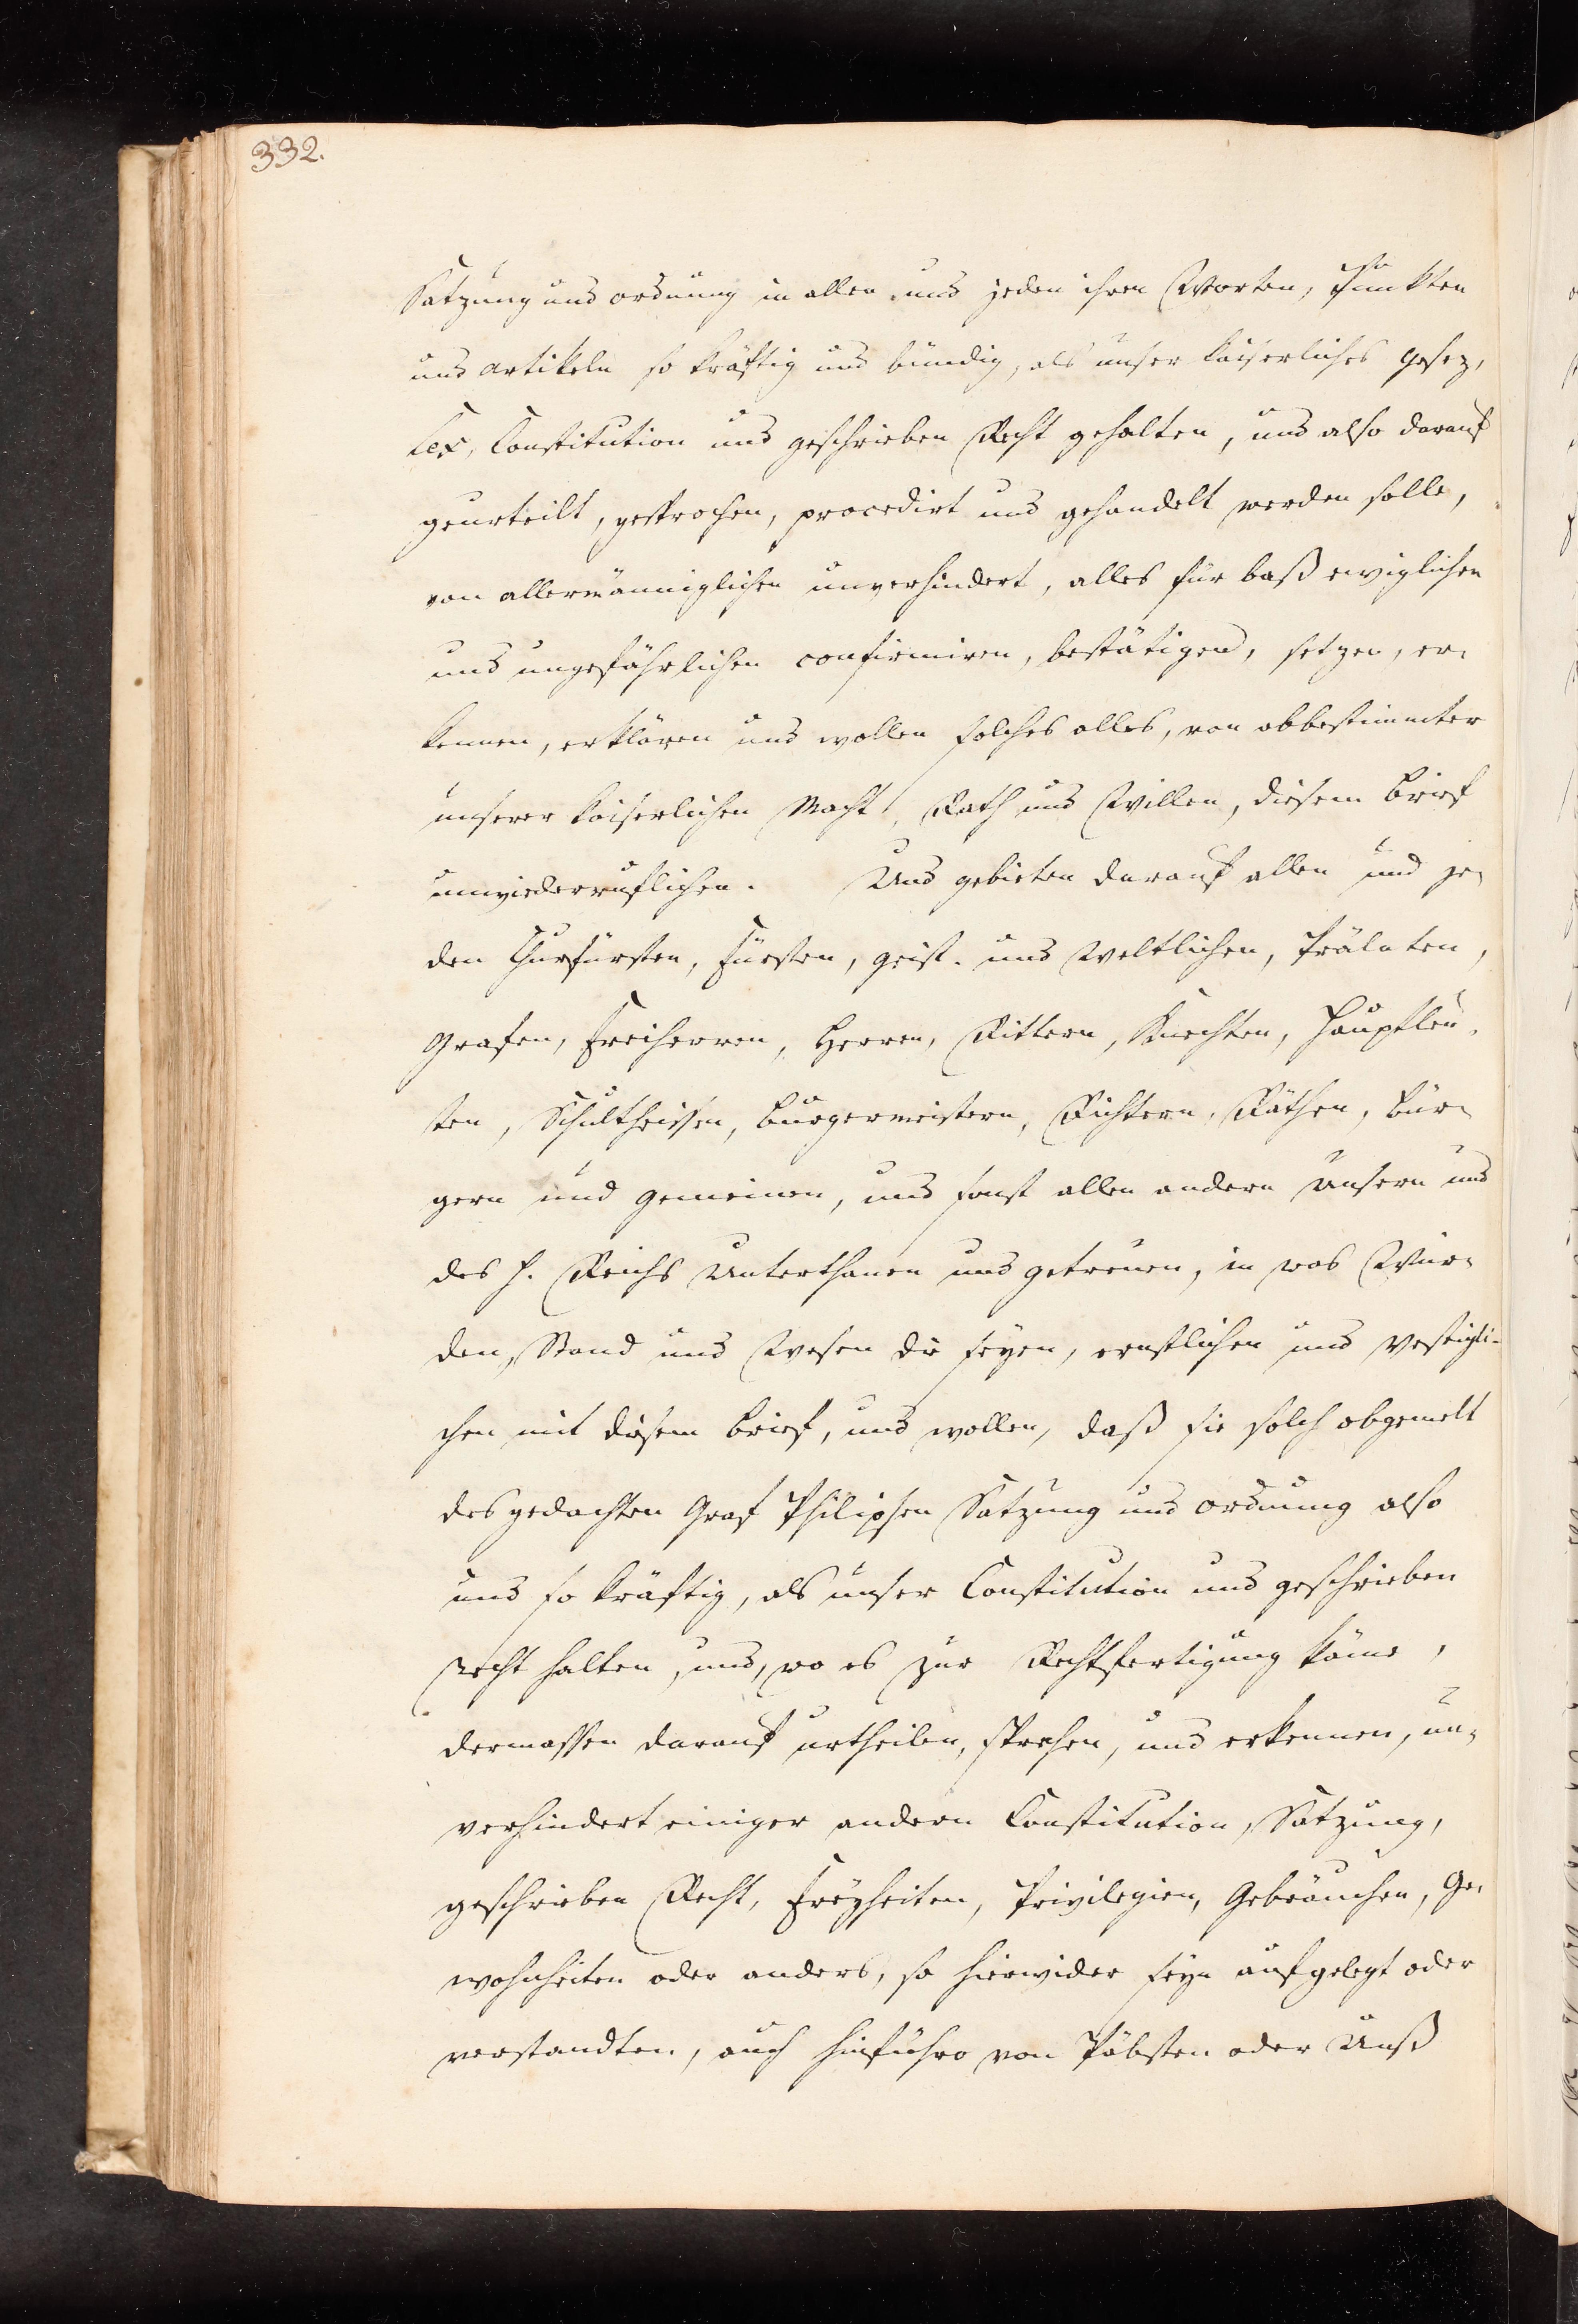 332.
Satzung und ordnung in allen und jeden ihren Worten, Punkten
und artikeln so kräftig und bündig, als unser kaiserliches gesez,
Lex, Constitution und geschrieben Recht gehalten, und also darauf
geurteilt, gesprochen, procedirt und gehandelt werden solle,
von allermänniglichen unverhindert, alles für baß ewiglichen
und ungefährlichen confirmiren, bestätigen, setzen, er-
kennen, erklären und wollen solches alles, von obbestimmter
unserer kaiserlichen Macht, Rath und Willen, diesem brief
unwiederruflichen. Und gebieten darauf allen und je-
den Churfürsten, Fürsten, geist. und Weltlichen, Prälaten,
Grafen, Freiherren, Herren, Rittern, Knechten, Hauptleu-
ten, Schultheissen, burgermeistern, Richtern, Räthen, bür-
gern und gemeinen, und sonst allen andern unsern und
des H. Reichs Unterthanen und getreuen, in was Wür-
den, Stand und Wesen die seyen, ernstlichen und vestigli-
chen mit diesem brief, und wollen, daß sie solch obgemelt
des gedachten Graf Philipsen Satzung und ordnung also
und so kräftig, als unser Constitution und geschrieben
recht halten, und, wo es zur Rechtfertigung käme,
dermassen darauf urtheilen, sprechen, und erkennen, un-
verhindert einiger andern Constitution, Satzung,
geschrieben Recht, Freyheiten, Privilegien, Gebräuchen, Ge-
wohnheiten oder anders, so hierwider seyn aufgelegt oder
verstandten, auch hinführo von Päbsten oder Unß